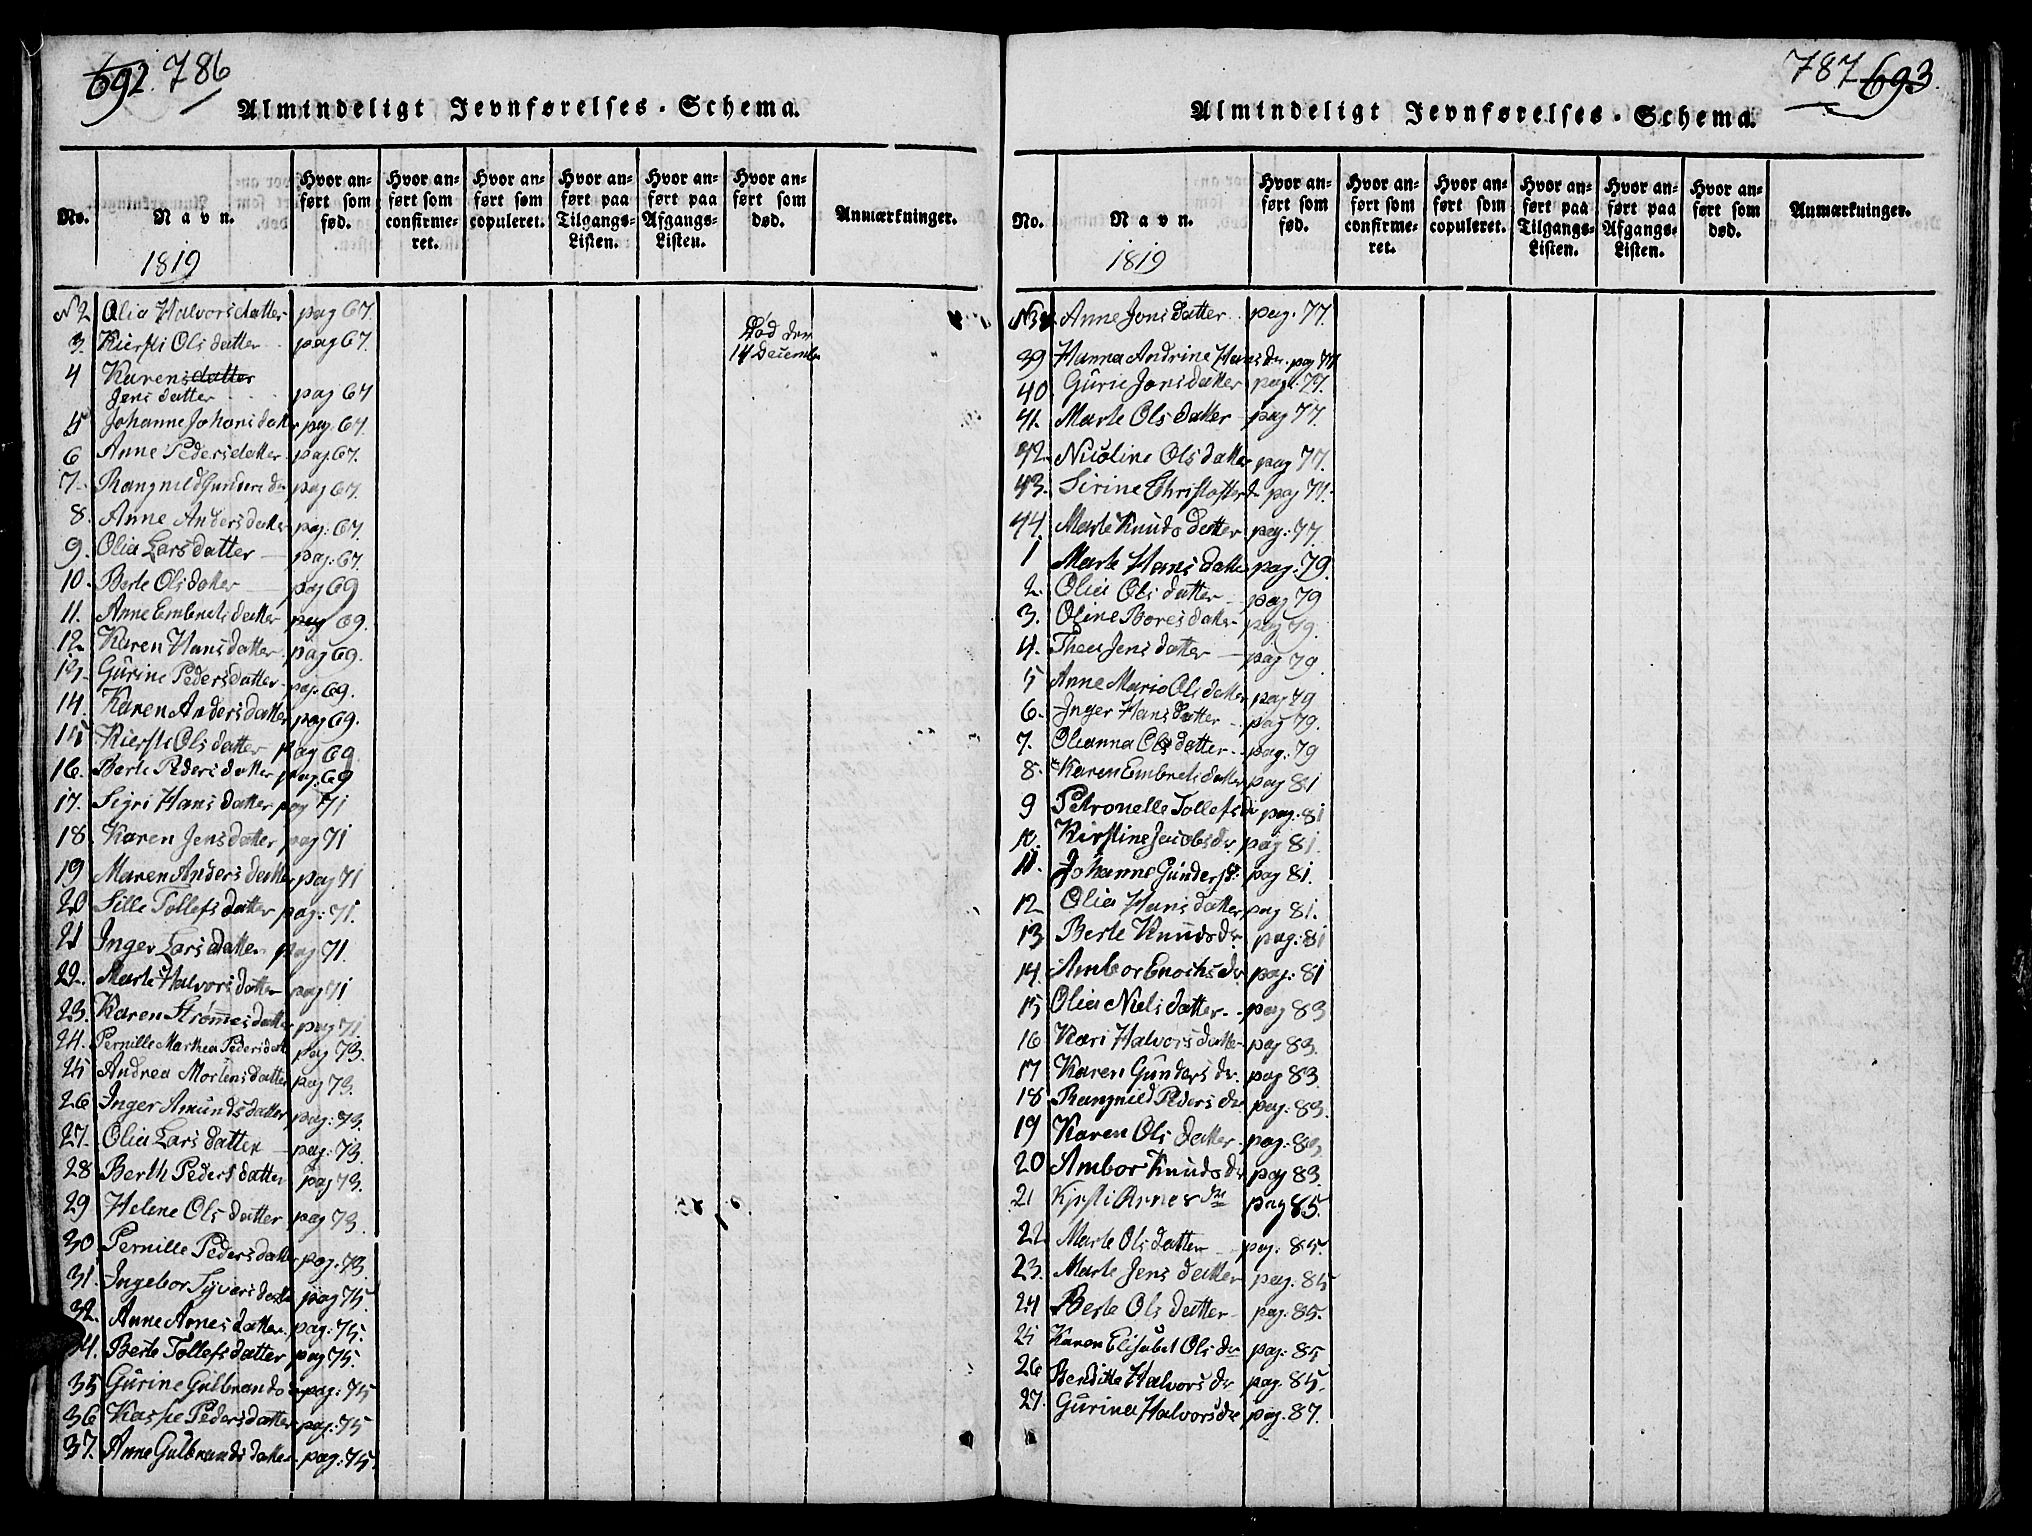 692. 786
Almindeligt Jevnførelses-Schema.
No.
Navn.
Hvor anført som fød.
Hvor anført som confirmeret.
Hvor anført som copuleret.
Hvor anført paa Tilgangs-Listen.
Hvor anført paa Afgangs-Listen.
Hvor anført som død.
Anmærkninger.
1819
N 2 Olia Halvorsdatter pag 67.
3. Kiersti Olsdatter pag 67. Død den 14 Decemb
4 Karensdatter
Jensdatter pag 67
5 Johanne Johansdatter pag. 67.
6 Anne Pedersdatter pag 67.
7. Rangnild Gunders dr pag 67.
8. Anne Andersdatter pag: 67.
9. Olia Larsdatter pag: 67.
10. Berte Olsdatter pag 69
11. Anne Embretsdatter pag 69.
12. Karen Hansdatter pag 69.
13. Gurine Pedersdatter pag. 69.
14. Karen Andersdatter pag 69.
15 Kiersti Olsdatter pag 69
16. Berte Pedersdatter pag. 69
17. Sigri Hansdatter pag 71
18. Karen Jensdatter pag 71
19 Maren Andersdatter pag 71
20 Sille Tollefsdatter pag: 71.
21 Inger Larsdatter pag 71.
22. Marte Halvorsdatter pag 71
23. Karen Strømesdatter pag 71
24. Pernille Marthea Pedersdatt pag 73.
25 Andrea Mortensdatter pag 73.
26 Inger Amundsdatter pag: 73.
27. Olia Larsdatter pag: 73.
28 Berth Pedersdatter pag 73.
29 Helene Olsdatter pag 73.
30 Pernille Pedersdatter pag. 73.
31. Ingebor Syversdatter pag 75.
32. Anne Arnesdatter pag: 75.
34. Berte Tollefsdatter pag 75.
35 Gurine Gulbrands pag: 75
36 Kasse Pedersdatter pag. 75
37. Anne Gulbrandsdatter pag: 75.
787 693.
Almindeligt Jevnførelses-Schema.
No.
Navn.
Hvor anført som fød.
Hvor anført som confirmeret.
Hvor anført som copuleret.
Hvor anført paa Tilgangs-Listen.
Hvor anført paa Afgangs-Listen.
Hvor anført som død.
Anmærkninger.
1819
Anne Jensdatter pag. 77.
39 Hanna Andrine Hansdr. pag 77
40 Gurie Jensdatter pag. 77.
41. Marte Olsdatter pag 77.
42. Nicoline Olsdatter pag 77.
43. Sirine Christofersd pag 77.
44. Marte Knudsdatter pag: 77.
1 Marte Hansdatter pag: 79.
2. Olia Olsdatter pag 79
3. Oline Boresdatter pag 79.
4. Thea Jensdatter pag 79.
5 Anne Marie Olsdatter pag 79
6. Inger Hansdatter pag 79.
7. Olianna Olsdatter pag. 79
8. Karen Embretsdatter pag 81
9 Petronelle Tollefsdr pag. 81
10. Kirstine Jacobsdr. pag 81.
11. Johanne Gundersd. pag 81.
12 Olia Hansdatter pag 81.
13 Berte Knudsdr pag: 81
14. Ambor Enochsdr pag: 81
15 Olia Nielsdatter pag 83
16 Kari Halvorsdatter pag 83.
17 Karen Gundersdr. pag 83.
18 Rangnild Pedersdr pag: 83.
19 Karen Olsdatter pag: 83.
20 Ambor Knudsdr pag 83.
21 Kjersti Arnesdr pag 85.
22 Marte Olsdatter pag. 85.
23. Marte Jensdatter pag. 85
24 Berte Olsdatter pag. 85.
25 Karen Elisabet Olsdr pag. 85
26 Benditte Halvorsdr pag. 85.
27. Gurina Halvorsdr pag. 87.